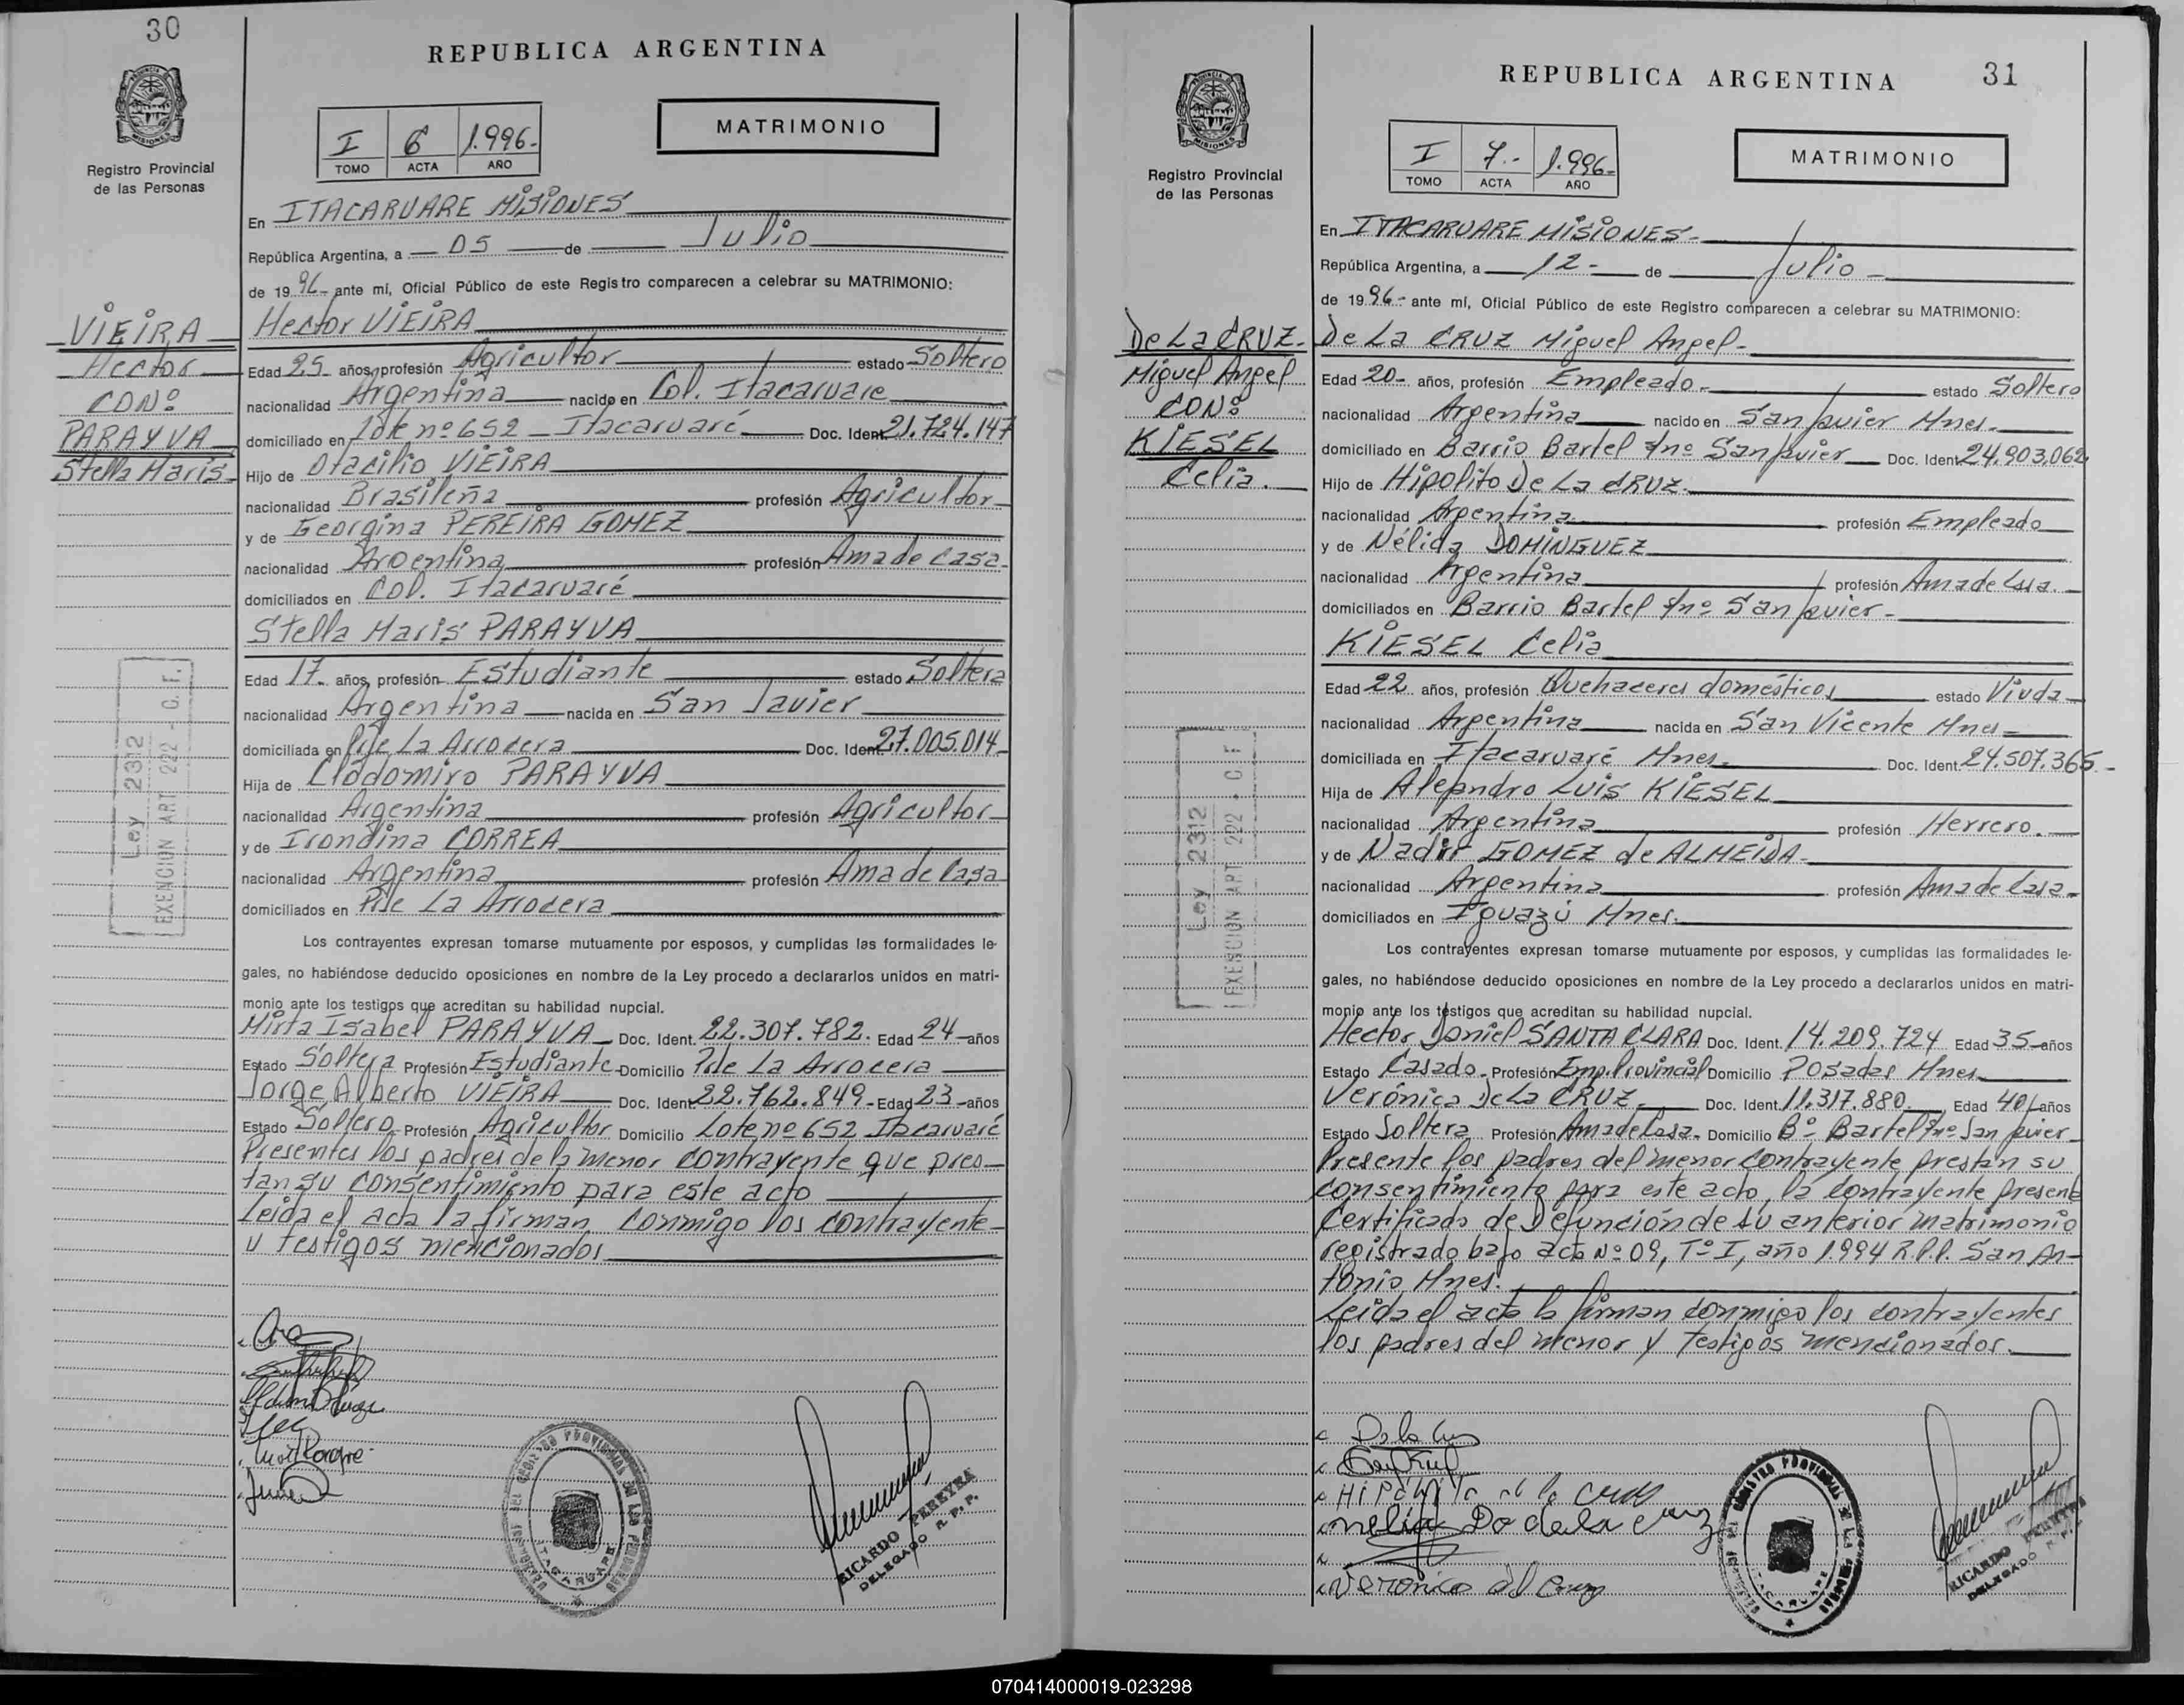 30
REPUBLICA ARGENTINA
PROVINCIA DE
MISIONES
Registro Provincial
de las Personas
I 6 1.996.-
TOMO ACTA AÑO
MATRIMONIO
En ITACARUARE MISIONES
República Argentina, a 05 de Julio
de 1996- ante mí, Oficial Público de este Registro comparecen a celebrar su MATRIMONIO:
VIEIRA
Hector
CON:
PARAYVA
Stella Maris
Hector VIEIRA
Edad 25 años, profesión Agricultor estado Soltero
nacionalidad Argentina nacido en Col. Itacaruare
domiciliado en Lote nº 652 - Itacaruaré Doc. Ident. 21.724.147
Hijo de Otacilio VIEIRA
nacionalidad Brasileña profesión Agricultor
y de Georgina PEREIRA GOMEZ
nacionalidad Argentina profesión Ama de Casa.
domiciliados en Col. Itacaruaré
Stella Maris PARAYVA
Edad 17 años, profesión Estudiante estado Soltera
nacionalidad Argentina nacida en San Javier
domiciliada en Pje La Arrocera Doc. Ident. 27.005.014
Hija de Clodomiro PARAYVA
nacionalidad Argentina profesión Agricultor
y de Irondina CORREA
nacionalidad Argentina profesión Ama de Casa
domiciliados en Pje La Arrocera
Ley 2312
EXENCION ART 222 - C. F.
Los contrayentes expresan tomarse mutuamente por esposos, y cumplidas las formalidades le-
gales, no habiéndose deducido oposiciones en nombre de la Ley procedo a declararlos unidos en matri-
monio ante los testigos que acreditan su habilidad nupcial.
Mirta Isabel PARAYVA Doc. Ident. 22.307.782. Edad 24 años
Estado Soltera Profesión Estudiante Domicilio Pje La Arrocera
Jorge Alberto VIEIRA Doc. Ident. 22.762.849- Edad 23 años
Estado Soltero Profesión Agricultor Domicilio Lote nº 652 Itacaruaré
Presentes los padres de la menor contrayente que pres-
tan su consentimiento para este acto
Leida el acta la firman conmigo los contrayente-
y testigos mencionados
ITACARUARE
RICARDO PEREYRA
DELEGADO R. P. P.
31
REPUBLICA ARGENTINA
PROVINCIA DE
MISIONES
Registro Provincial
de las Personas
I 7.- 1.996-
TOMO ACTA AÑO
MATRIMONIO
En ITACARUARE MISIONES-
República Argentina, a 12- de Julio
de 1996- ante mí, Oficial Público de este Registro comparecen a celebrar su MATRIMONIO:
De La CRUZ.
Miguel Angel
CON:
KIESEL
Celia.
De La CRUZ Miguel Angel-
Edad 20- años, profesión Empleado- estado Soltero
nacionalidad Argentina nacido en San Javier Mnes-
domiciliado en Barrio Bartel s/nº San Javier Doc. Ident. 24.903.062
Hijo de Hipolito De La CRUZ.
nacionalidad Argentina profesión Empleado
y de Nélida DOMINGUEZ
nacionalidad Argentina profesión Ama de Casa.
domiciliados en Barrio Bartel s/nº San Javier-
KIESEL Celia
Edad 22 años, profesión Quehaceres domésticos estado Viuda
nacionalidad Argentina nacida en San Vicente Mnes
domiciliada en Itacaruaré Mnes. Doc. Ident. 24.507.365-
Hija de Alejandro Luis KIESEL
nacionalidad Argentina profesión Herrero.
y de Nadir GOMEZ de ALMEIDA-
nacionalidad Argentina profesión Ama de Casa-
domiciliados en Iguazú Mnes.
Ley 2312
EXENCION ART 222 - C F
Los contrayentes expresan tomarse mutuamente por esposos, y cumplidas las formalidades le-
gales, no habiéndose deducido oposiciones en nombre de la Ley procedo a declararlos unidos en matri-
monio ante los testigos que acreditan su habilidad nupcial.
Hector Daniel SANTA CLARA Doc. Ident. 14.209.724 Edad 35 años
Estado Casado- Profesión Emp. Provincial Domicilio Posadas Mnes
Verónica De La CRUZ- Doc. Ident. 11.317.880 Edad 40 años
Estado Soltera Profesión Ama de Casa- Domicilio Bº Bartel s/nº San Javier
Presente los padres del menor contrayente prestan su
consentimiento para este acto, la contrayente presenta
Certificado de Defunción de su anterior matrimonio
registrado bajo acta Nº 09, Tº I, año 1.994 R.P.P. San An-
tonio Mnes.
Leida el acta la firman conmigo los contrayentes
los padres del menor y Testigos mencionados.
De la Cruz
Hipólito de la Cruz
Veronica de la Cruz
ITACARUARE
RICARDO PEREYRA
DELEGADO R. P. P.
070414000019-023298